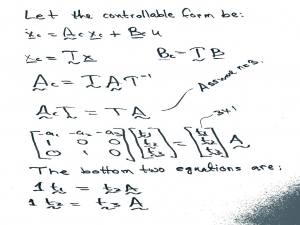 Let the controllable form be:
ẋc = Ac xc + Bc u
xc = T x    Bc = T B
Ac = T A T⁻¹
Ac T = T A    Assume n=3
[-a₁ -a₂ -a₃
1 0 0
0 1 0] [t₁
t₂
t₃] = [t₁
t₂
t₃] A    3x1
The bottom two equations are:
1 t₁ = t₂ A
1 t₂ = t₃ A